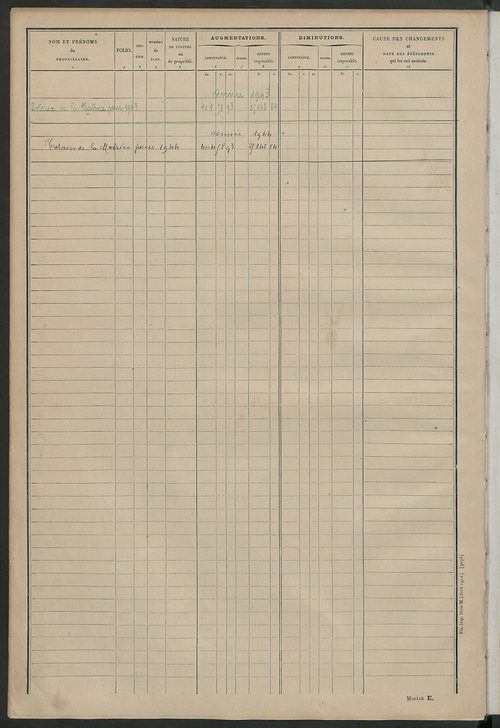 NOM ET PRÉNOMS
du
PROPRIÉTAIRE.
FOLIO.
SEC-
TION.
NUMÉRO
du
PLAN.
NATURE
DE CULTURE
ou
de propriété.
AUGMENTATIONS.
CONTENANCE.
CLASSE.
REVENU
imposable.
DIMINUTIONS.
CONTENANCE.
CLASSE.
REVENU
imposable.
CAUSE DES CHANGEMENTS
et
DATE DES ÉVÉNEMENTS
qui les ont motivés.
Année 1943
Totaux de la Matrice pour 1943
Année 1944
Totaux de la Matrice pour 1944
MODÈLE E.